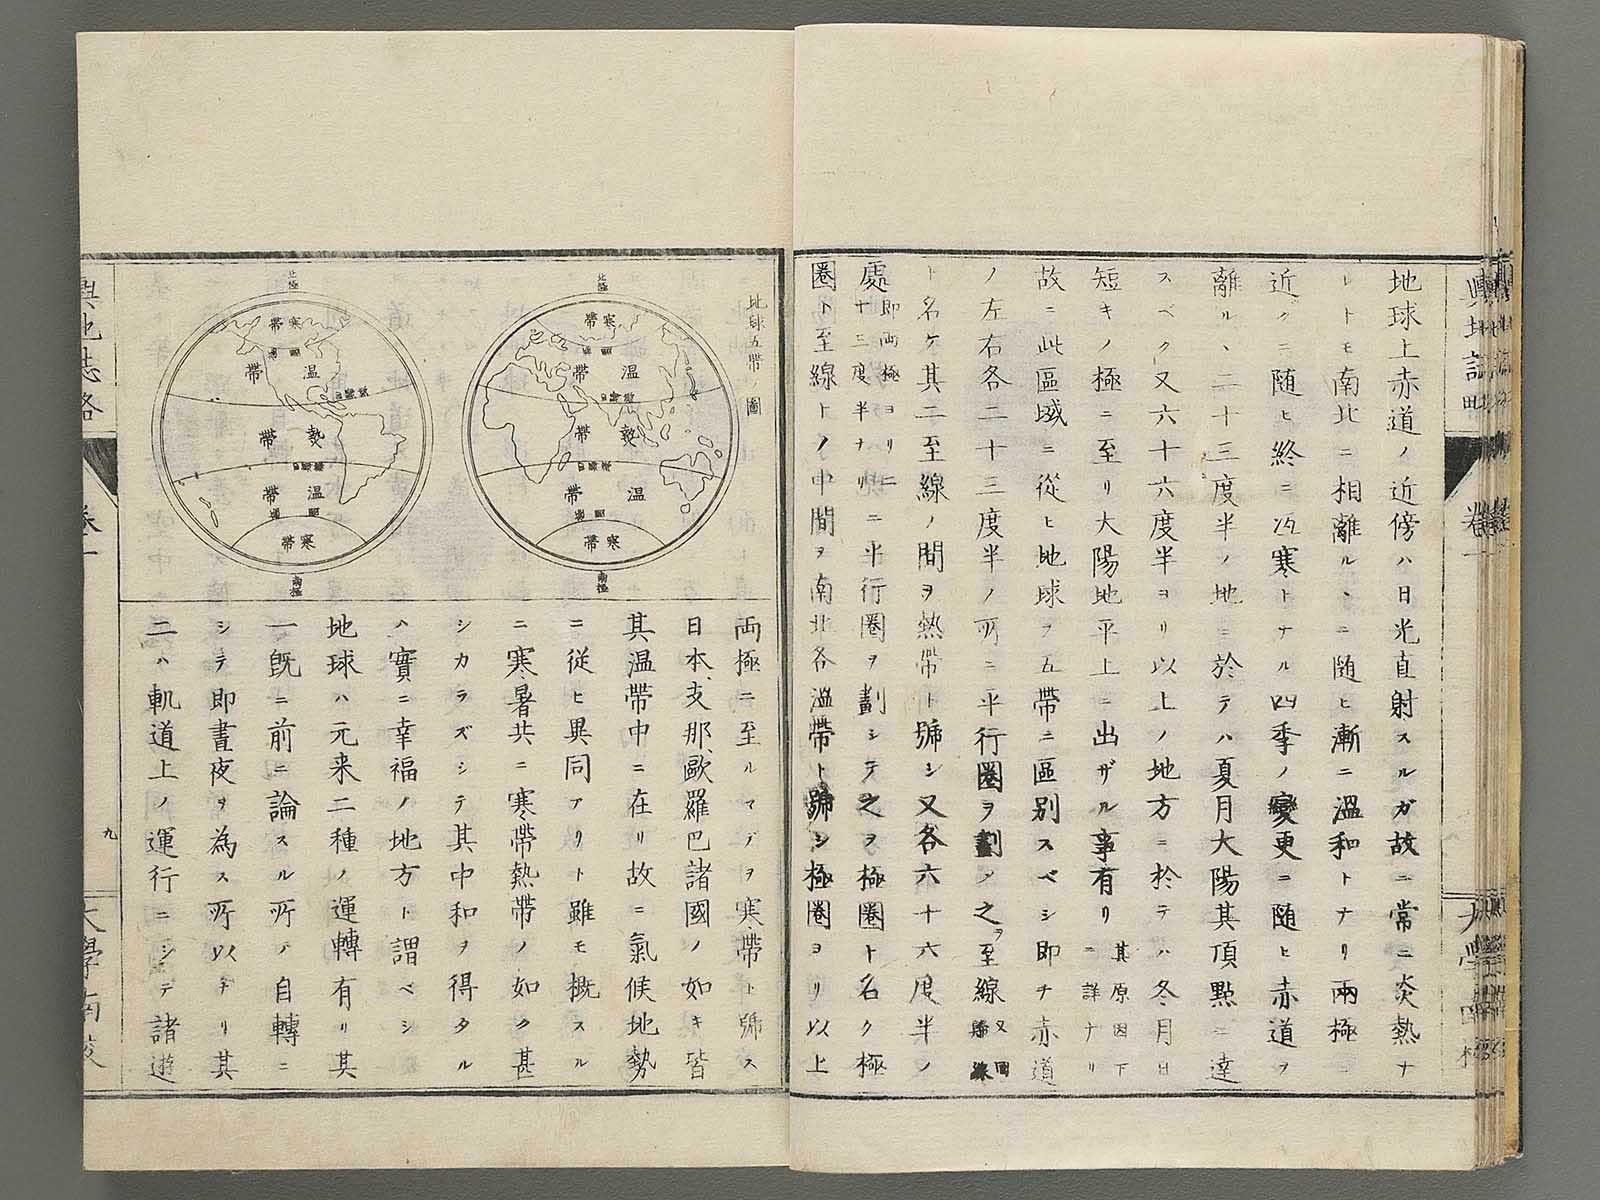 地球上赤道ノ近傍ハ日光直射スルガ故ニ常ニ炎熱ナ
レトモ南北ニ相離ル丶ニ随ヒ漸ニ溫和トナリ兩極ニ
近ヅクニ随ヒ終ニ冱寒トナル四季ノ變更ニ随ヒ赤道ヲ
離ル丶二十三度半ノ地ニ於テハ夏月大陽其頂點ニ達
スベク又六十六度半ヨリ以上ノ地方ニ於テハ冬月日
短キノ極ニ至リ大陽地平上ニ出ザル事有リ其原因下ニ詳ナリ
故ニ此區域ニ從ヒ地球ヲ五帶ニ區別スベシ即チ赤道
ノ左右各二十三度半ノ所ニ平行圈ヲ劃シ之ヲ至線又回歸線
ト名ケ其二至線ノ間ヲ熱帶ト號シ又各六十六度半ノ
處即両極ヨリ二十三度半ナリニ平行圈ヲ劃シテ之ヲ極圈ト名ク極
圈ト至線トノ中間ヲ南北各溫帶ト號シ極圈ヨリ以上
地球五帶ノ圖
北極
寒帶
溫帶
熱帶
溫帶
寒帶
南極
北極
寒帶
溫帶
熱帶
溫帶
寒帶
南極
両極ニ至ルマデヲ寒帶ト號ス
日本、支那、歐羅巴諸國ノ如キ皆
其溫帶中ニ在リ故ニ氣候地勢
ニ從ヒ異同アリト雖モ概スル
ニ寒暑共ニ寒帶熱帶ノ如ク甚
シカラズシテ其中和ヲ得タル
ハ實ニ幸福ノ地方ト謂ベシ
地球ハ元来二種ノ運轉有リ其
一旣ニ前ニ論スル所ノ自轉ニ
シテ即晝夜ヲ為ス所以ナリ其
二ハ軌道上ノ運行ニシテ諸遊
輿地誌略
卷一
九
大學南校